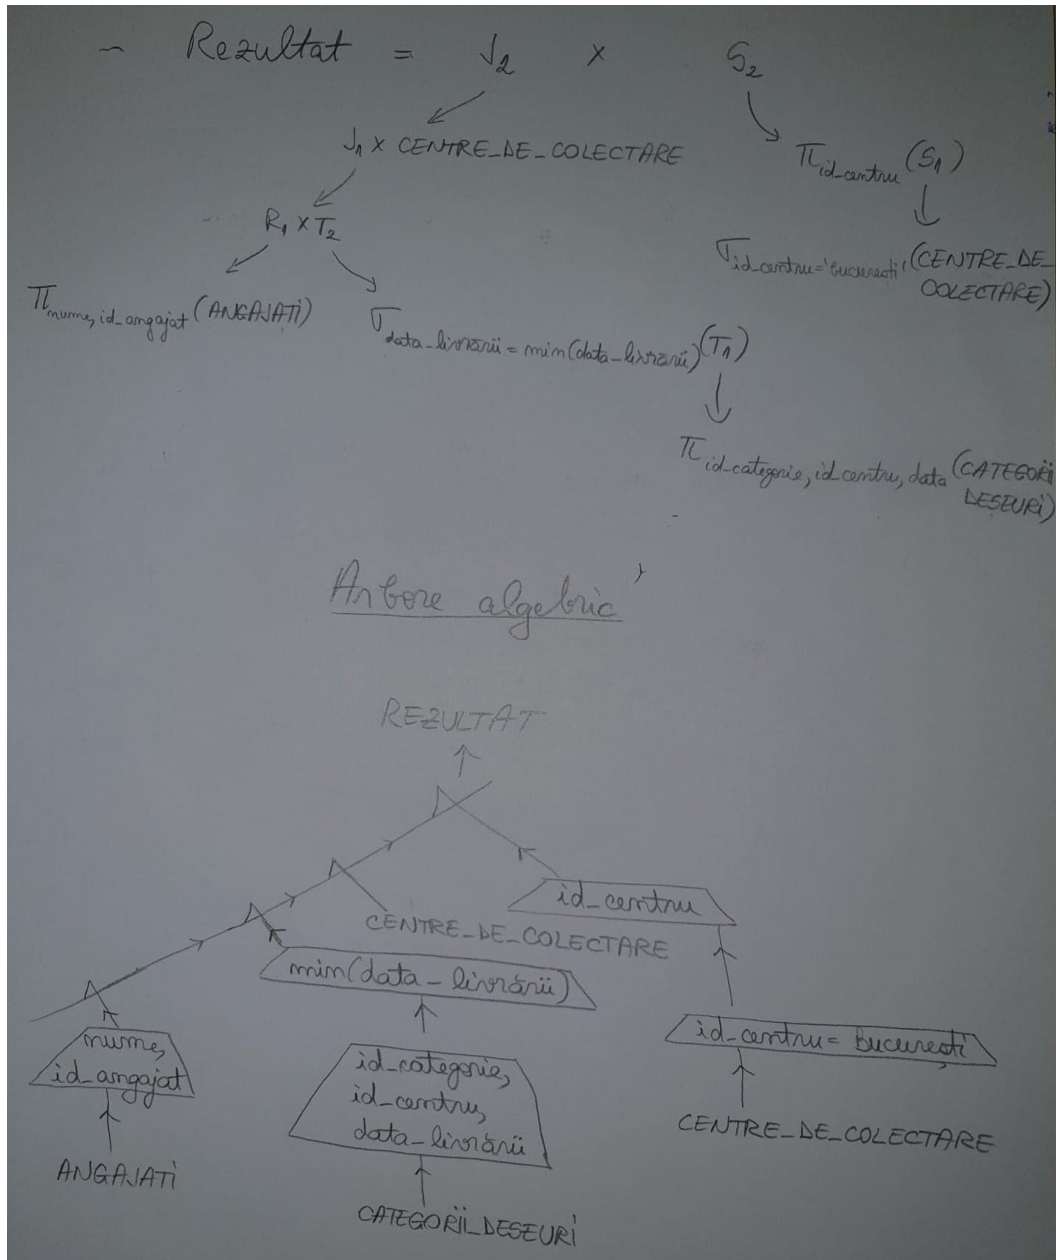 - Rezultat = J₂ × S₂
J₁ × CENTRE_DE_COLECTARE
π id_centru (S₁)
R₁ × T₂
σ id_centru='București' (CENTRE_DE_
COLECTARE)
π nume, id_angajat (ANGAJAȚI)
σ data_livrării = min(data_livrării) (T₁)
π id_categorie, id centru, data (CATEGORII
DESEURI)
Arbore algebric
REZULTAT
id_centru
CENTRE_DE_COLECTARE
min(data_livrării)
nume,
id_angajat
id_categorie,
id_centru,
data_livrării
id_centru = București
CENTRE_DE_COLECTARE
ANGAJATI
CATEGORII_DESEURI